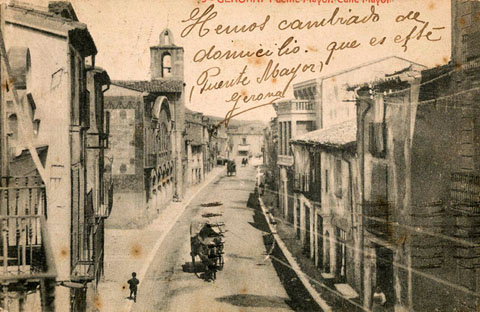 GERONA. Puente Mayor. Calle Mayor.
Hemos cambiado de
domicilio. que es este
(Puente Mayor)
Gerona